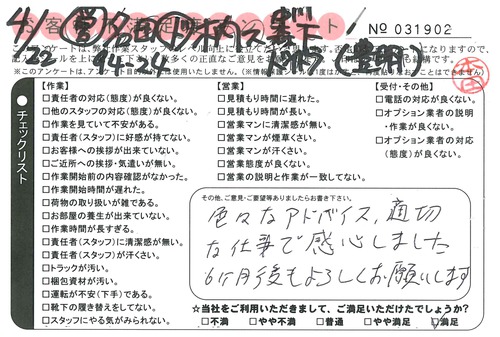 № 031902
4/22
24:24
チェックリスト
【作業】
□責任者の対応(態度)が良くない。
□他のスタッフの対応(態度)が良くない。
□作業を見ていて不安がある。
□責任者(スタッフ)に好感が持てない。
□お客様への挨拶が出来ていない。
□ご近所への挨拶・気遣いが無い。
□作業開始前の内容確認がなかった。
□作業開始時間が遅れた。
□荷物の取り扱いが雑である。
□お部屋の養生が出来ていない。
□作業時間が長すぎる。
□責任者(スタッフ)に清潔感が無い。
□責任者(スタッフ)が汗くさい。
□トラックが汚い。
□梱包資材が汚い。
□運転が不安(下手)である。
□靴下の履き替えをしてない。
□スタッフにやる気がみられない。
【営業】
□見積もり時間に遅れた。
□見積もり時間が長い。
□営業マンに清潔感が無い。
□営業マンが煙草くさい。
□営業マンが汗くさい。
□営業態度が良くない。
□営業の説明と作業が一致してない。
【受付・その他】
□電話の対応が良くない。
□オプション業者の説明
・作業が良くない。
□オプション業者の対応
(態度)が良くない。
その他、ご意見・ご要望等ありましたらお書き下さい。
色々なアドバイス、適切
な仕事で感心しました
6ヶ月後もよろしくお願いします
☆当社をご利用いただきまして、ご満足いただけたでしょうか?
□不満 □やや不満 □普通 □やや満足 ☑満足